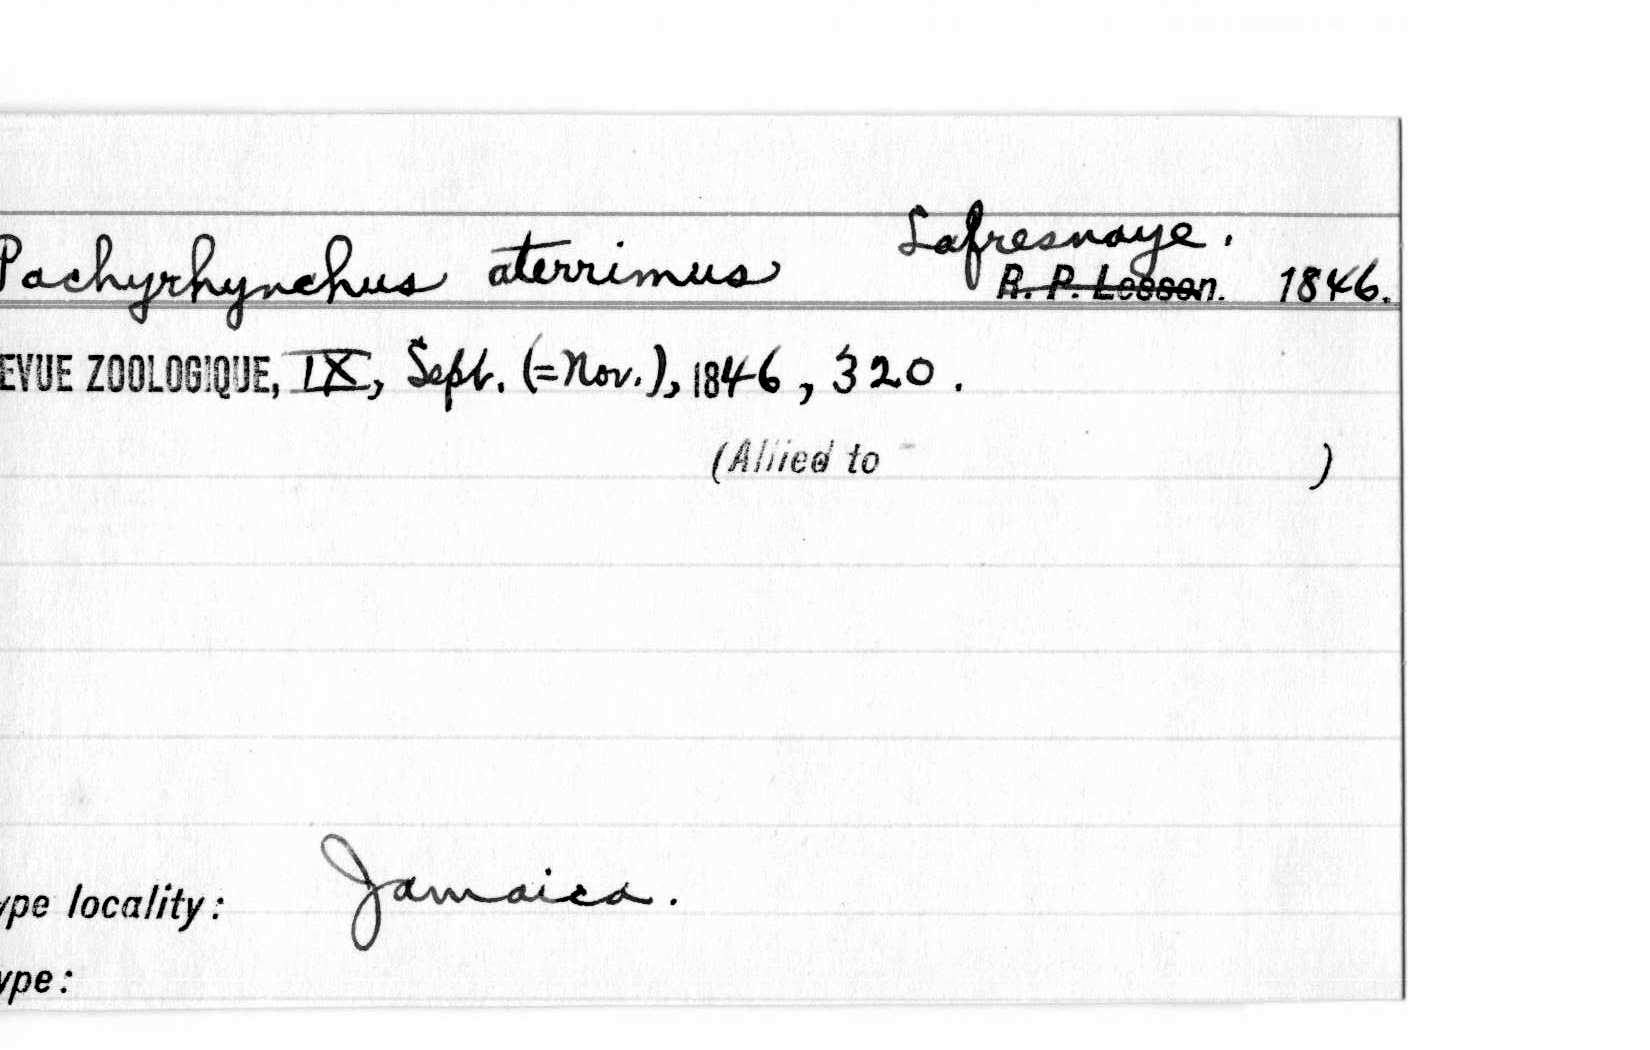 Pachyrhynchus aterrimus Lafresnaye.
R. P. Lesson. 1846.
EVUE ZOOLOGIQUE, IX, Sept. (=Nov.), 1846, 320.
(Allied to )
ype locality: Jamaica.
ype: